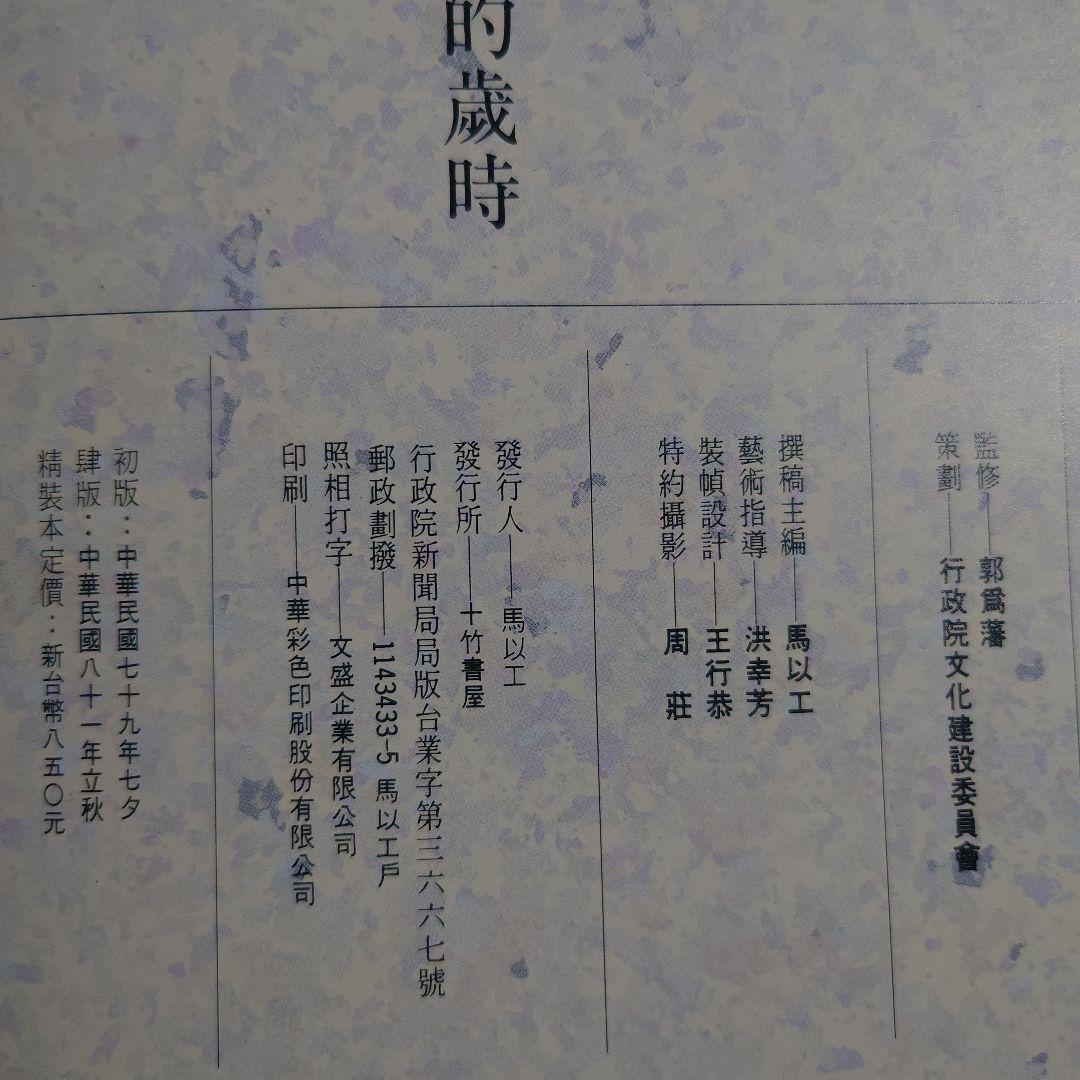 的歲時
監修——郭爲藩
策劃——行政院文化建設委員會
撰稿主編——馬以工
藝術指導——洪幸芳
裝幀設計——王行恭
特約攝影——周 莊
發行人——馬以工
發行所——十竹書屋
行政院新聞局局版台業字第三六六七號
郵政劃撥——1143433-5 馬以工戶
照相打字——文盛企業有限公司
印刷——中華彩色印刷股份有限公司
初版：中華民國七十九年七夕
肆版：中華民國八十一年立秋
精裝本定價：新台幣八五〇元